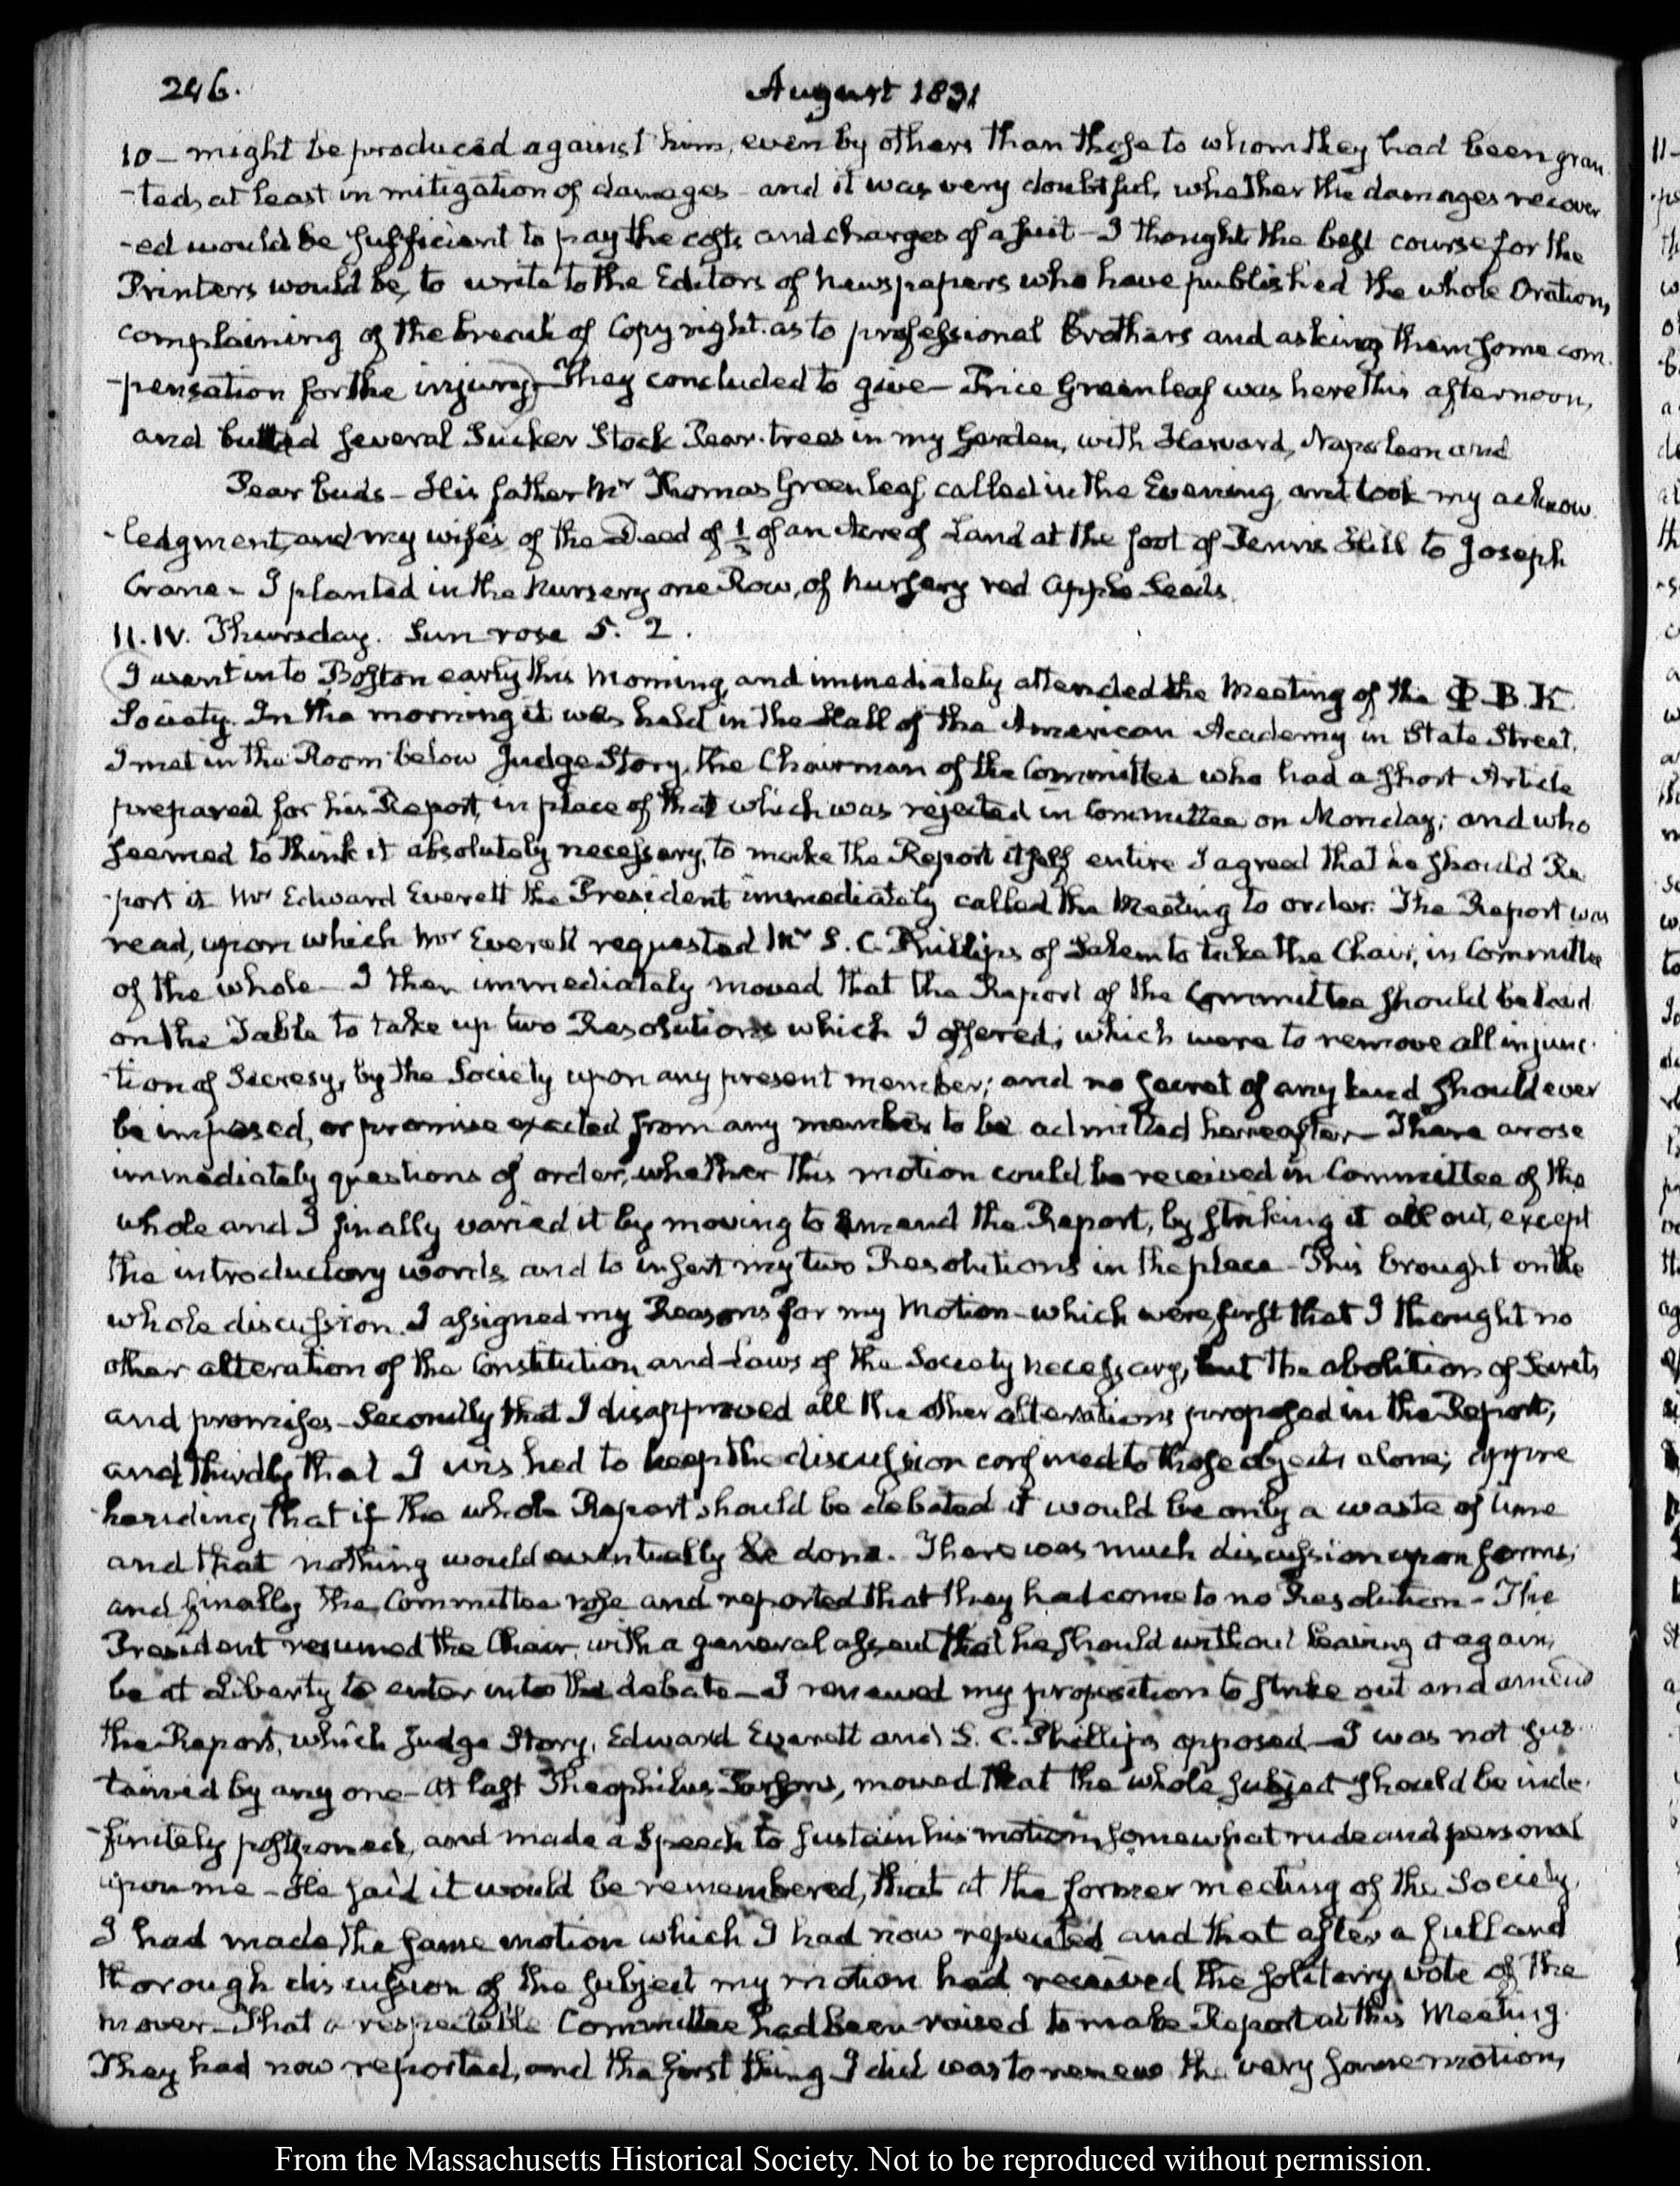 246.
August 1831
10 — might be produced against him, even by others than those to whom they had been gran
-ted, at least in mitigation of damages – and it was very doubtful, whether the damages recover
-ed would be sufficient to pay the costs and charges of a suit – I thought the best course for the
Printers would be, to write to the Editors of Newspapers who have published the whole Oration,
complaining of the breach of Copy right as to professional Brothers and asking them some com
-pensation for the injury – They concluded to give – Price Greenleaf was here this afternoon,
and budded several Sucker Stock Pear-trees in my Garden, with Harvard, Napoleon and
Pear buds – His father Mr Thomas Greenleaf, called in the Evening and took my acknow
-ledgment, and my wife's of the Deed of ½ of an Acre of Land at the foot of Penns Hill to Joseph
Crane – I planted in the Nursery one Row, of Nursery red Apple Seeds.
11. IV. Thursday. Sun rose 5. 2.
I went into Boston early this Morning, and immediately attended the Meeting of the Φ.B.K.
Society. In the morning it was held in the Hall of the American Academy in State Street.
I met in the Room below Judge Story, the Chairman of the Committee who had a short Article
prepared for his Report, in place of that which was rejected in Committee on Monday; and who
seemed to think it absolutely necessary, to make the Report itself entire I agreed that he should Re
-port it Mr Edward Everett the President immediately called the Meeting to order. The Report was
read, upon which Mr Everett requested Mr S. C. Phillips of Salem to take the Chair, in Committee
of the whole – I then immediately moved that the Report of the Committee should be laid
on the Table to take up two Resolutions which I offered; which were to remove all injunc-
-tion of Secresy, by the Society upon any present member; and no secret of any kind should ever
be imposed, or promise exacted from any member to be admitted hereafter – There arose
immediately questions of order, whether this motion could be received in Committee of the
whole and I finally varied it by moving to amend the Report, by striking it all out, except
the introductory words, and to insert my two Resolutions in the place – This brought on the
whole discussion. I assigned my Reasons for my Motion – which were, first that I thought no
other alteration of the Constitution and Laws of the Society necessary, but the abolition of Secrets
and promises – Secondly that I disapproved all the other alterations proposed in the Report,
and thirdly that I wished to keep the discussion confined to those objects alone; appre
-hending that if the whole Report should be debated it would be only a waste of time
and that nothing would eventually be done. There was much discussion upon forms;
and finally the Committee rose and reported that they had come to no Resolution – The
President resumed the Chair, with a general assent that he should without leaving it again,
be at Liberty to enter into the debate – I renewed my proposition to strike out and amend
the Report, which Judge Story, Edward Everett and S. C. Phillips opposed – I was not sus-
tained by any one – At last Theophilus Parsons, moved that the whole subject should be inde-
-finitely postponed, and made a Speech to sustain his motion, somewhat rude and personal
upon me – He said it would be remembered, that at the former meeting of the Society.
I had made the same motion which I had now repeated and that after a full and
thorough discussion of the subject my motion had received the solitary vote of the
mover – That a respectable Committee had been raised to make Report at this Meeting.
They had now reported, and the first thing I did was to renew the very same motion,
From the Massachusetts Historical Society. Not to be reproduced without permission.